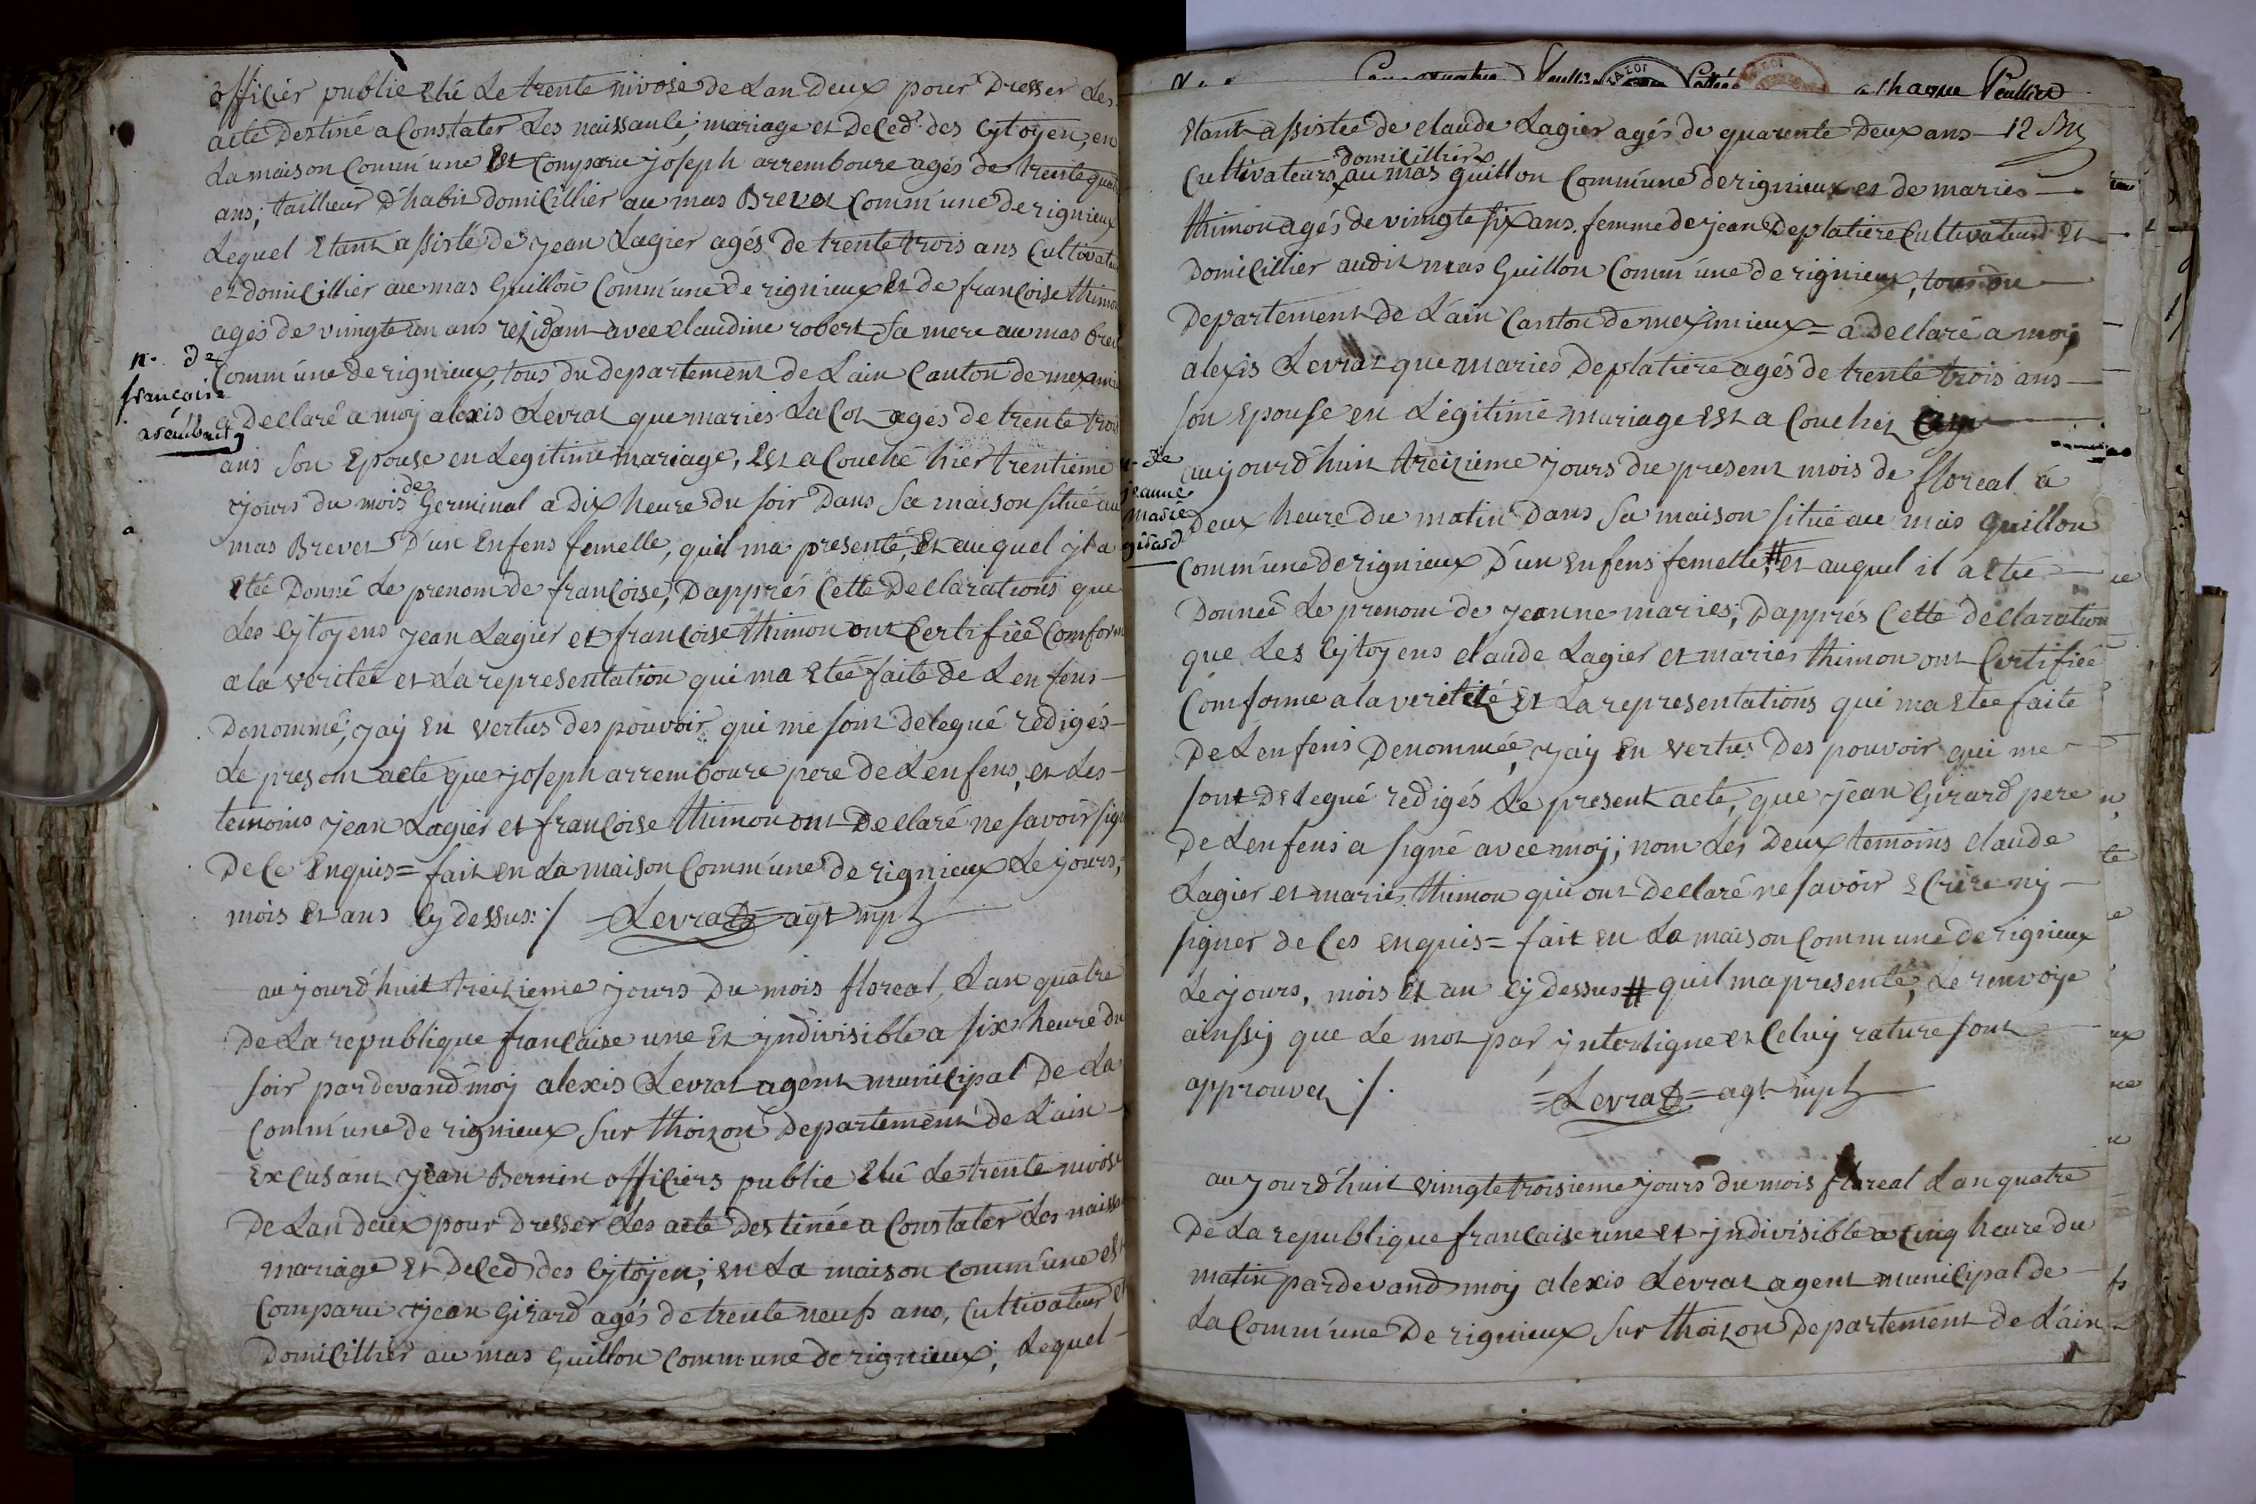 officier public elu le trente nivose de Lan deux pour Dresser Les
acte Destiné a Constater Les naissance, mariage et Deced des Cytoyen, en
La maison Comm'une Est Comparu joseph arremboure agés de trente quat
ans, tailleur D'habit domicillier au mas Brevet Comm'une De rignieux
Lequel Etant assisté de jean Lagier agés de trente trois ans Cultivate
et domicillier au mas Guillon Comm'une De rignieux Et de françoise thimon
agés de vimgte un ans residant avec claudine robert sa mere au mas brev
Comm'une De rignieux, tous du departement de Lain Canton de meximie
n. de
françoise
a declaré a moy alexis Levrat que maries La Cot agés de trente trois
ans son Epouse en Legitime mariage, Est a Couché hier trentieme
jours du mois de Germinal a Dix heure du soir Dans sa maison situé au
mas Brevet D'un Enfens femelle, quil ma presenté, Et auquel jl a
Etée Donné Le prenom de françoise, Dapprés Cette Declarations que
Les Cytoyens jean Lagier et françoise thimon ont Certifiée Comform
a la veritée et La representation qui ma Etée faite de Lenfens
Denommé, jay En vertus des pouvoir qui me sont delegué redigés
Le present acte que joseph arremboure pere de Lenfens, et Les
temoins jean Lagier et françoise thimon ont Declaré ne savoir sign
De Ce Enquis = fait en La maison Comm'une De rignieux Le jours,
mois Et ans Cy dessus ./ Levrat agt mpl
aujourd'huit treizieme jours Du mois floreal, Lan quatre
De La republique française une Et jndivisible a six heure du
soir pardevand moy alexis Levrat agent municipal De La
Comm'une De rignieux sur thoizon Departement De Lain
Excusant jean Bernin officiers public Elu Le trente nivose
De Lan deux pour Dresser Les acte Destinée a Constater Les naiss
mariage Et Deced des Cytoyen, En La maison Comm'une est
Comparu jean Girard agés de trente neufs ans, Cultivateur et
Domicillier au mas Guillon Comm'une De rignieux, Lequel
chaque feuillet
Etant assistée de claude Lagier agés de quarente Deux ans 12
domicilliers
Cultivateurs au mas Guillon Comm'une De rignieux et de maries
thimon agés de vimgte six ans femme de jean Deplatiere Cultivateur Et
Domicillier audit mas Guillon Comm'une De rignieux, tous du
Departement De Lain Canton de meximieux = a Declaré a moy
alexis Levrat que maries Deplatiere agés de trente trois ans
son Epouse en Légitime mariage Est a Couchez
n. de
jeanne
marie
girard
aujourd'huit treizieme jours du present mois de floreal a
Deux heure Du matin Dans sa maison situé au mas Guillon
Comm'une De rignieux D'un Enfens femelle, # et auquel il a Etée
Donnée Le prenom de jeanne maries, Dapprés Cette declaration
que Les Cytoyens claude Lagier et maries thimon ont Certifiée
Comforme a la veritée Et La representations qui ma Etée faite
De Lenfens Denommée, jay En vertus Des pouvoir qui me
sont Delegué redigés Le present acte, que jean Girard pere
De Lenfens a signé avec moy, nom Les Deux temoins claude
Lagier et maries thimon qui ont declaré ne savoir Ecrire ny
signer de Ces enquis = fait en La maison Commune de rignieux
Le jours, mois Et an Cy dessus # quil ma presenté, Le renvoye
ainssy que Le mot par jnterligne et Celuy rature sont
approuvez ./. = Levrat = agt mpl
aujourd'huit vimgte troisieme jours du mois floreal Lan quatre
De La republique française une et jndivisible a Cinq heure du
matin pardevand moy alexis Levrat agent municipal de
La Comm'une De rignieux sur thoizon Departement de Lain